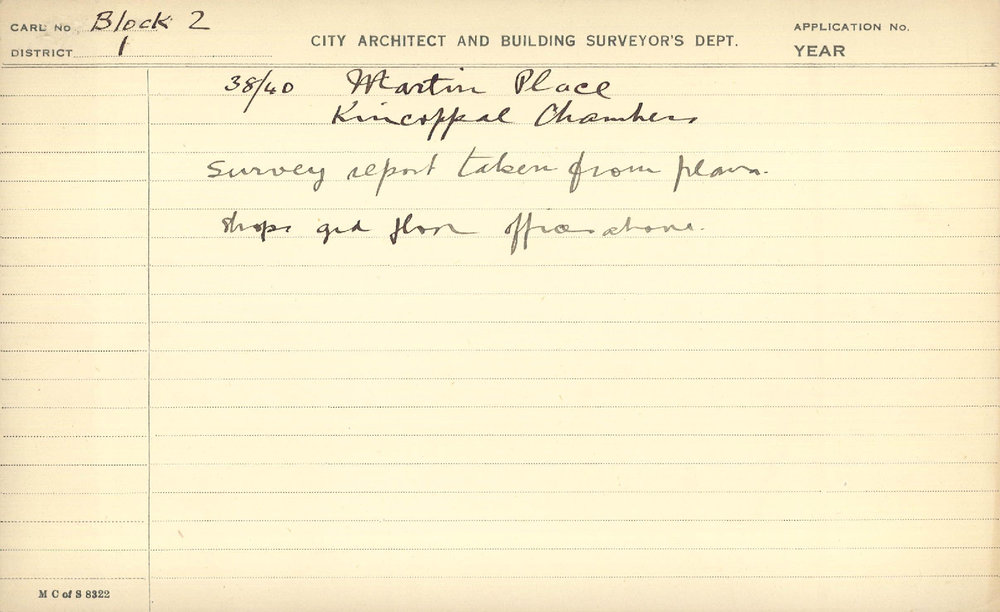 CARD No Block 2
DISTRICT 1
CITY ARCHITECT AND BUILDING SURVEYOR'S DEPT.
APPLICATION No.
YEAR
38/40 Martin Place
Kincoppal Chambers
Survey report taken from plans.
Shops grd floor offices above.
M C of S 8322